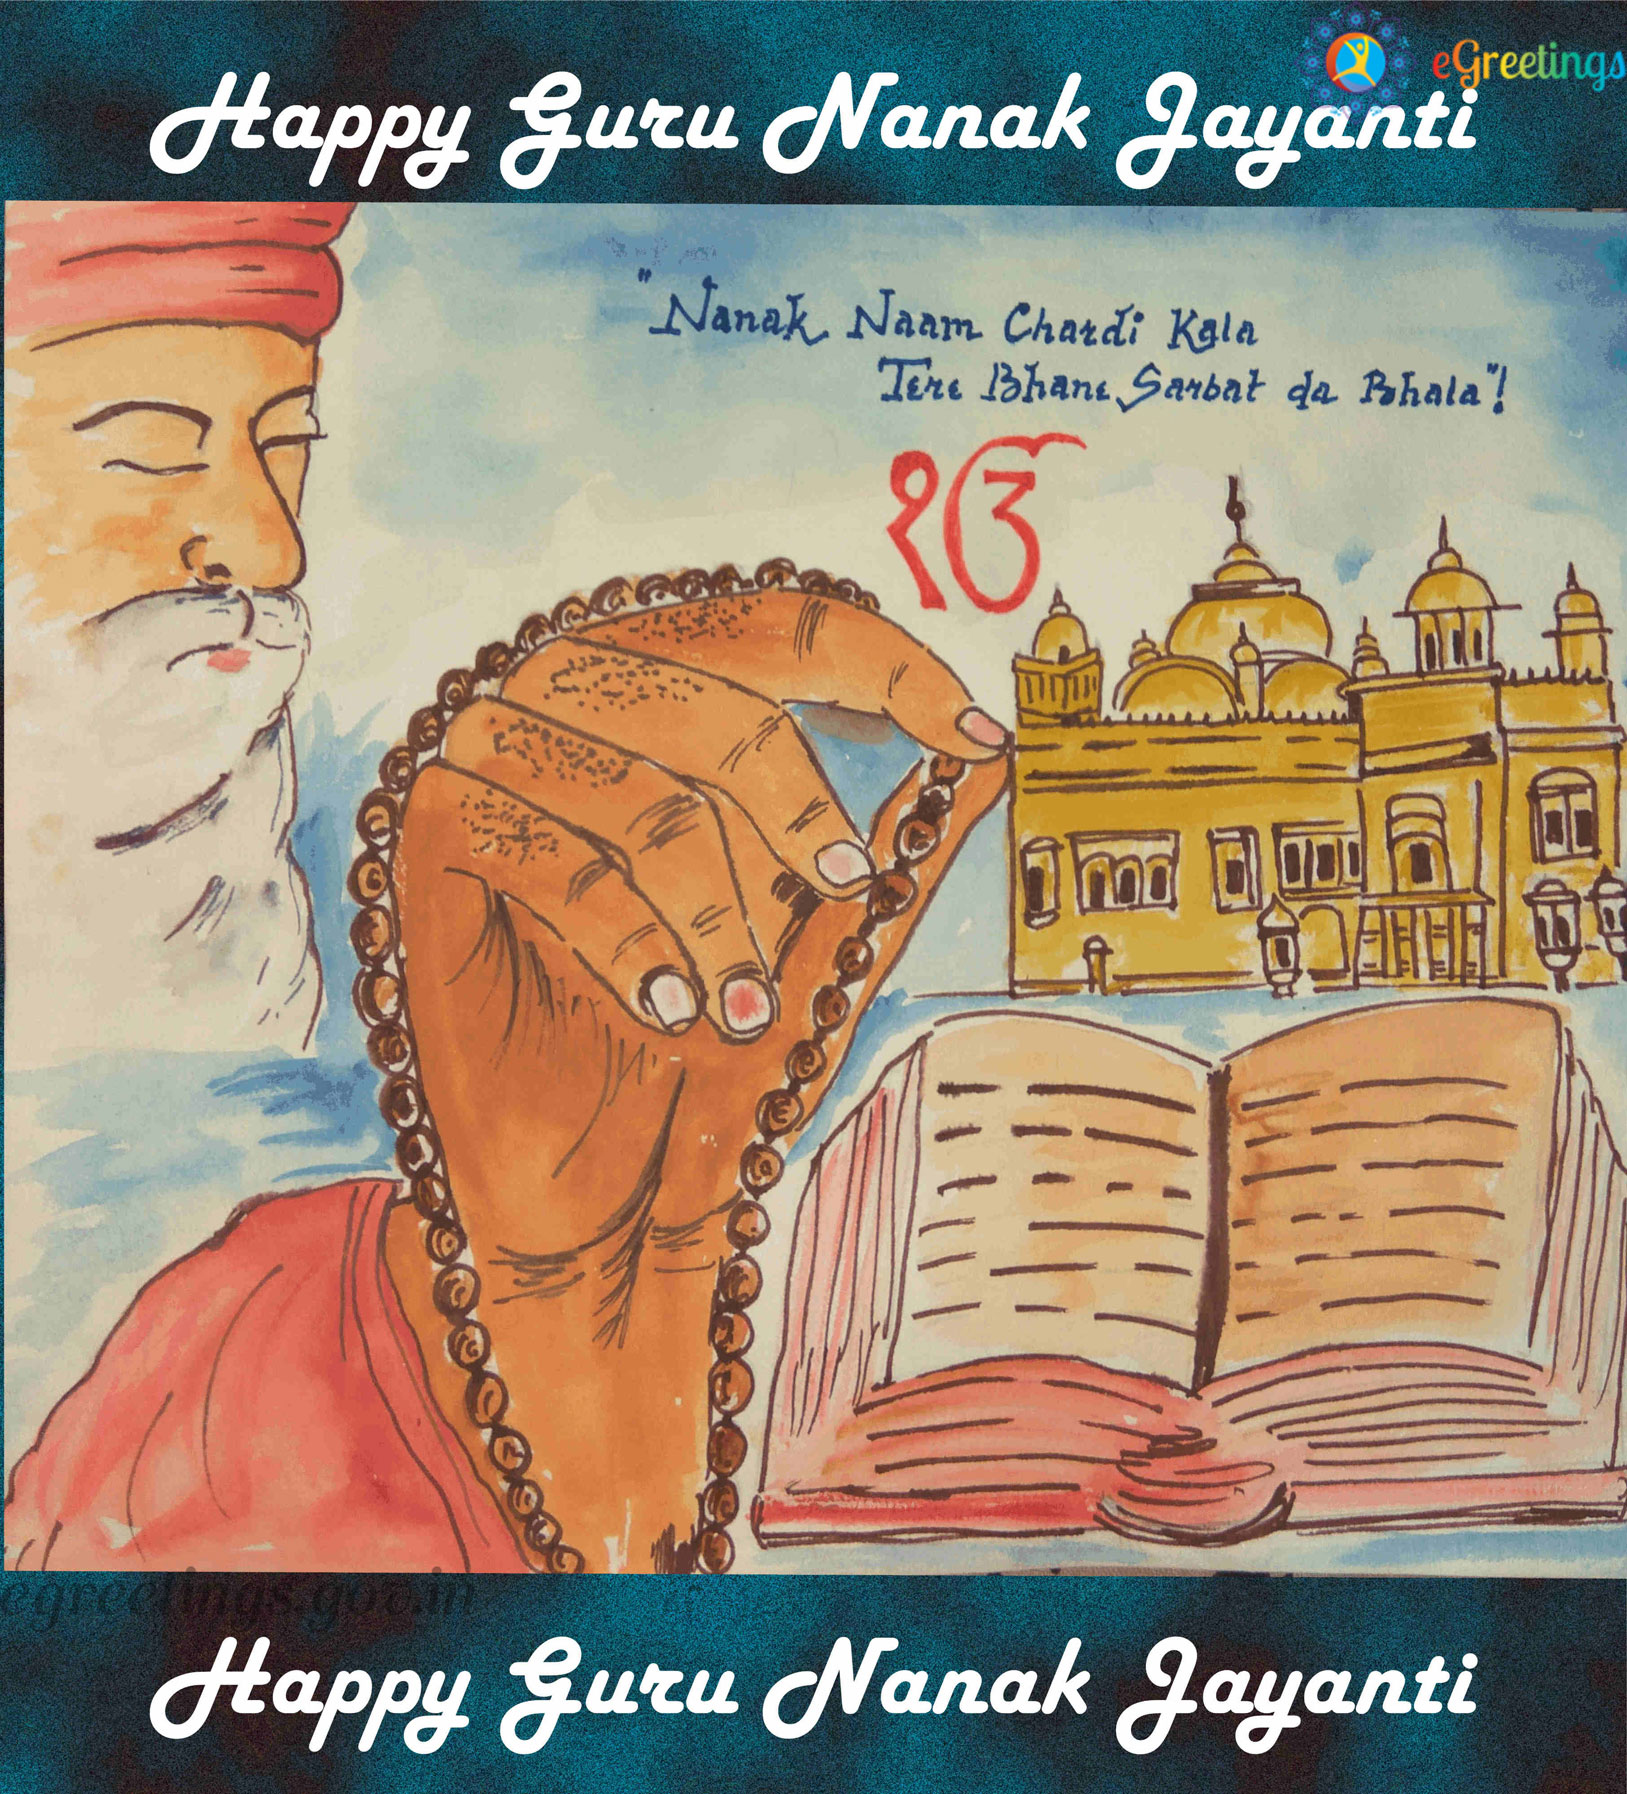 eGreetings
Happy Guru Nanak Jayanti
"Nanak Naam Chardi Kala
Tere Bhane Sarbat da Bhala"!
ੴ
egreetings.gov.in
Happy Guru Nanak Jayanti